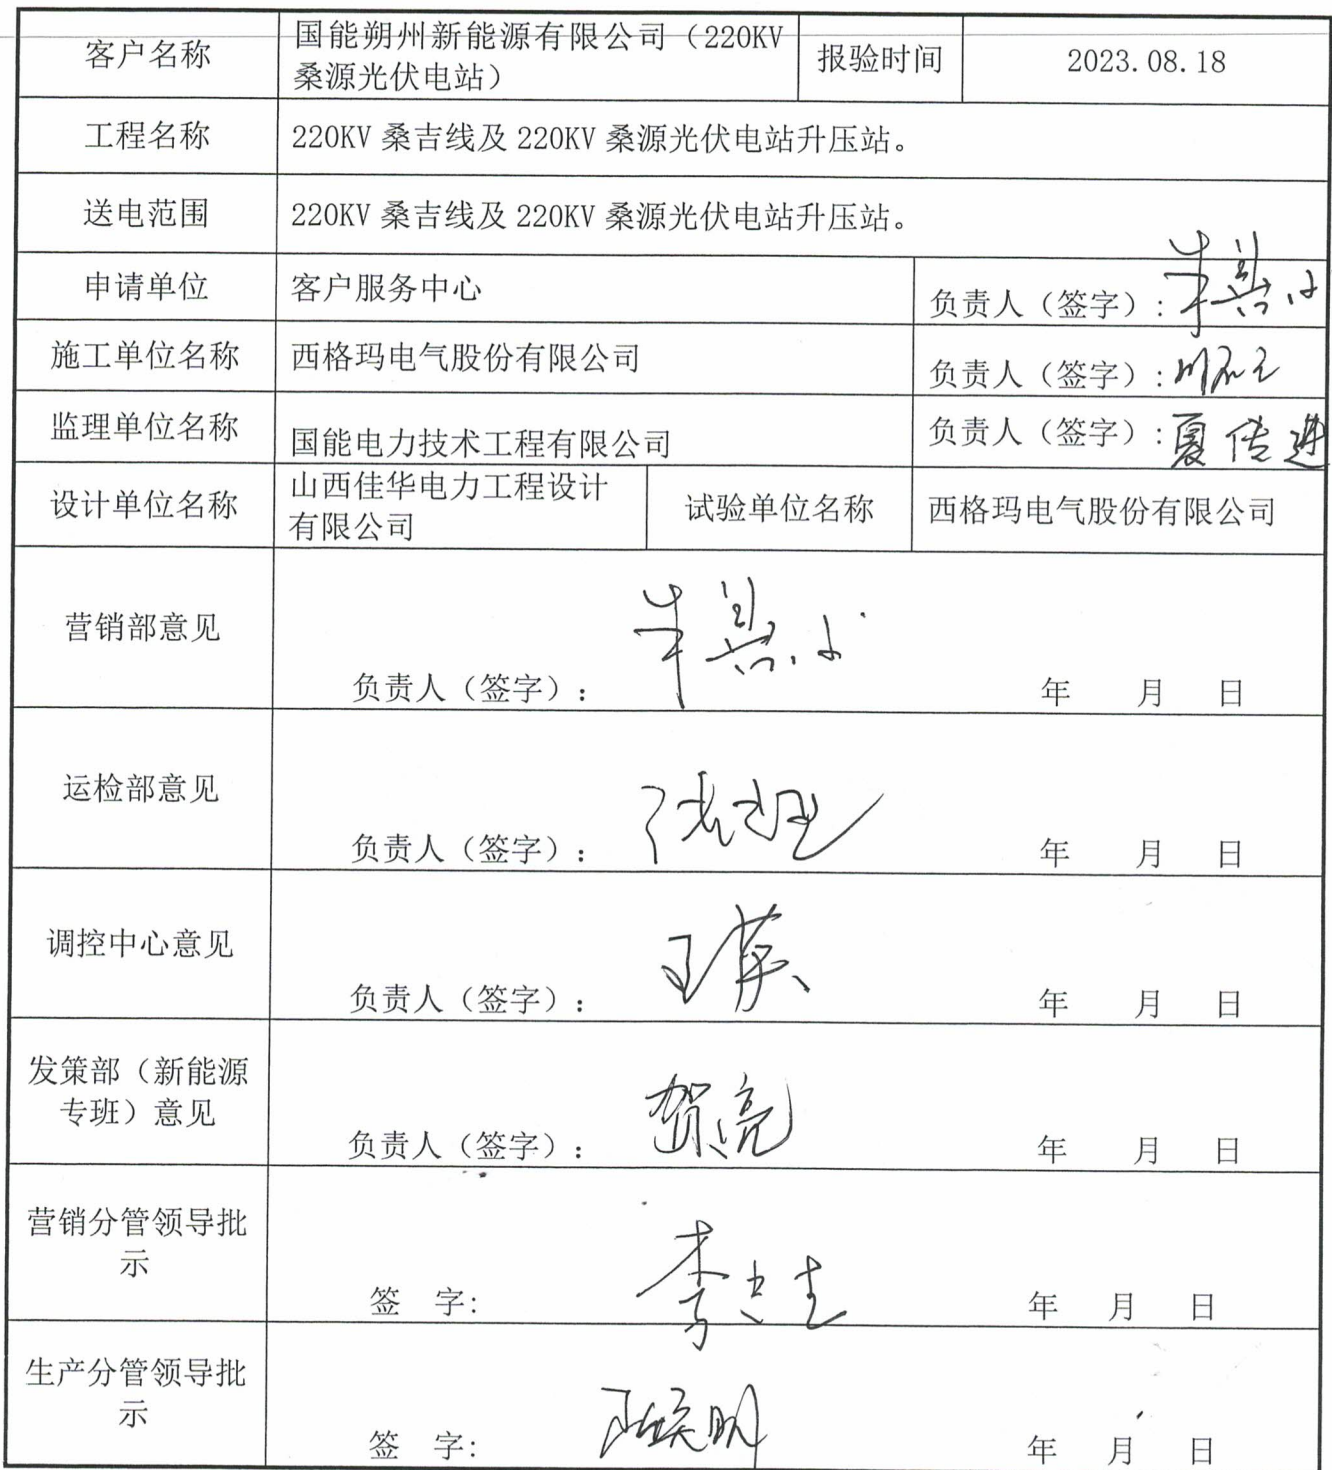 客户名称 国能朔州新能源有限公司（220KV 报验时间 2023.08.18
桑源光伏电站）
工程名称 220KV 桑吉线及 220KV 桑源光伏电站升压站。
送电范围 220KV 桑吉线及 220KV 桑源光伏电站升压站。
申请单位 客户服务中心 负责人（签字）:
施工单位名称 西格玛电气股份有限公司 负责人（签字）:
监理单位名称 国能电力技术工程有限公司 负责人（签字）: 夏传进
设计单位名称 山西佳华电力工程设计 试验单位名称 西格玛电气股份有限公司
有限公司
营销部意见
负责人（签字）: 年 月 日
运检部意见
负责人（签字）: 年 月 日
调控中心意见
王英
负责人（签字）: 年 月 日
发策部（新能源
专班）意见
贺亮
负责人（签字）: 年 月 日
营销分管领导批
示
签 字: 年 月 日
生产分管领导批
示
签 字: 年 月 日